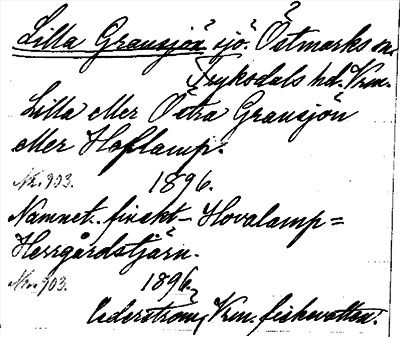 Lilla Gransjön sjö. Östmarks sn.
Frykdals hd. Vrm.
Lilla eller Östra Gransjön
eller Hoflamp.
No. 903. 1896.
Namnet finskt = Hovalamp =
Herrgårdstjärn.
No. 903. 1896.
Cederström, Vrm. fiskvatten.